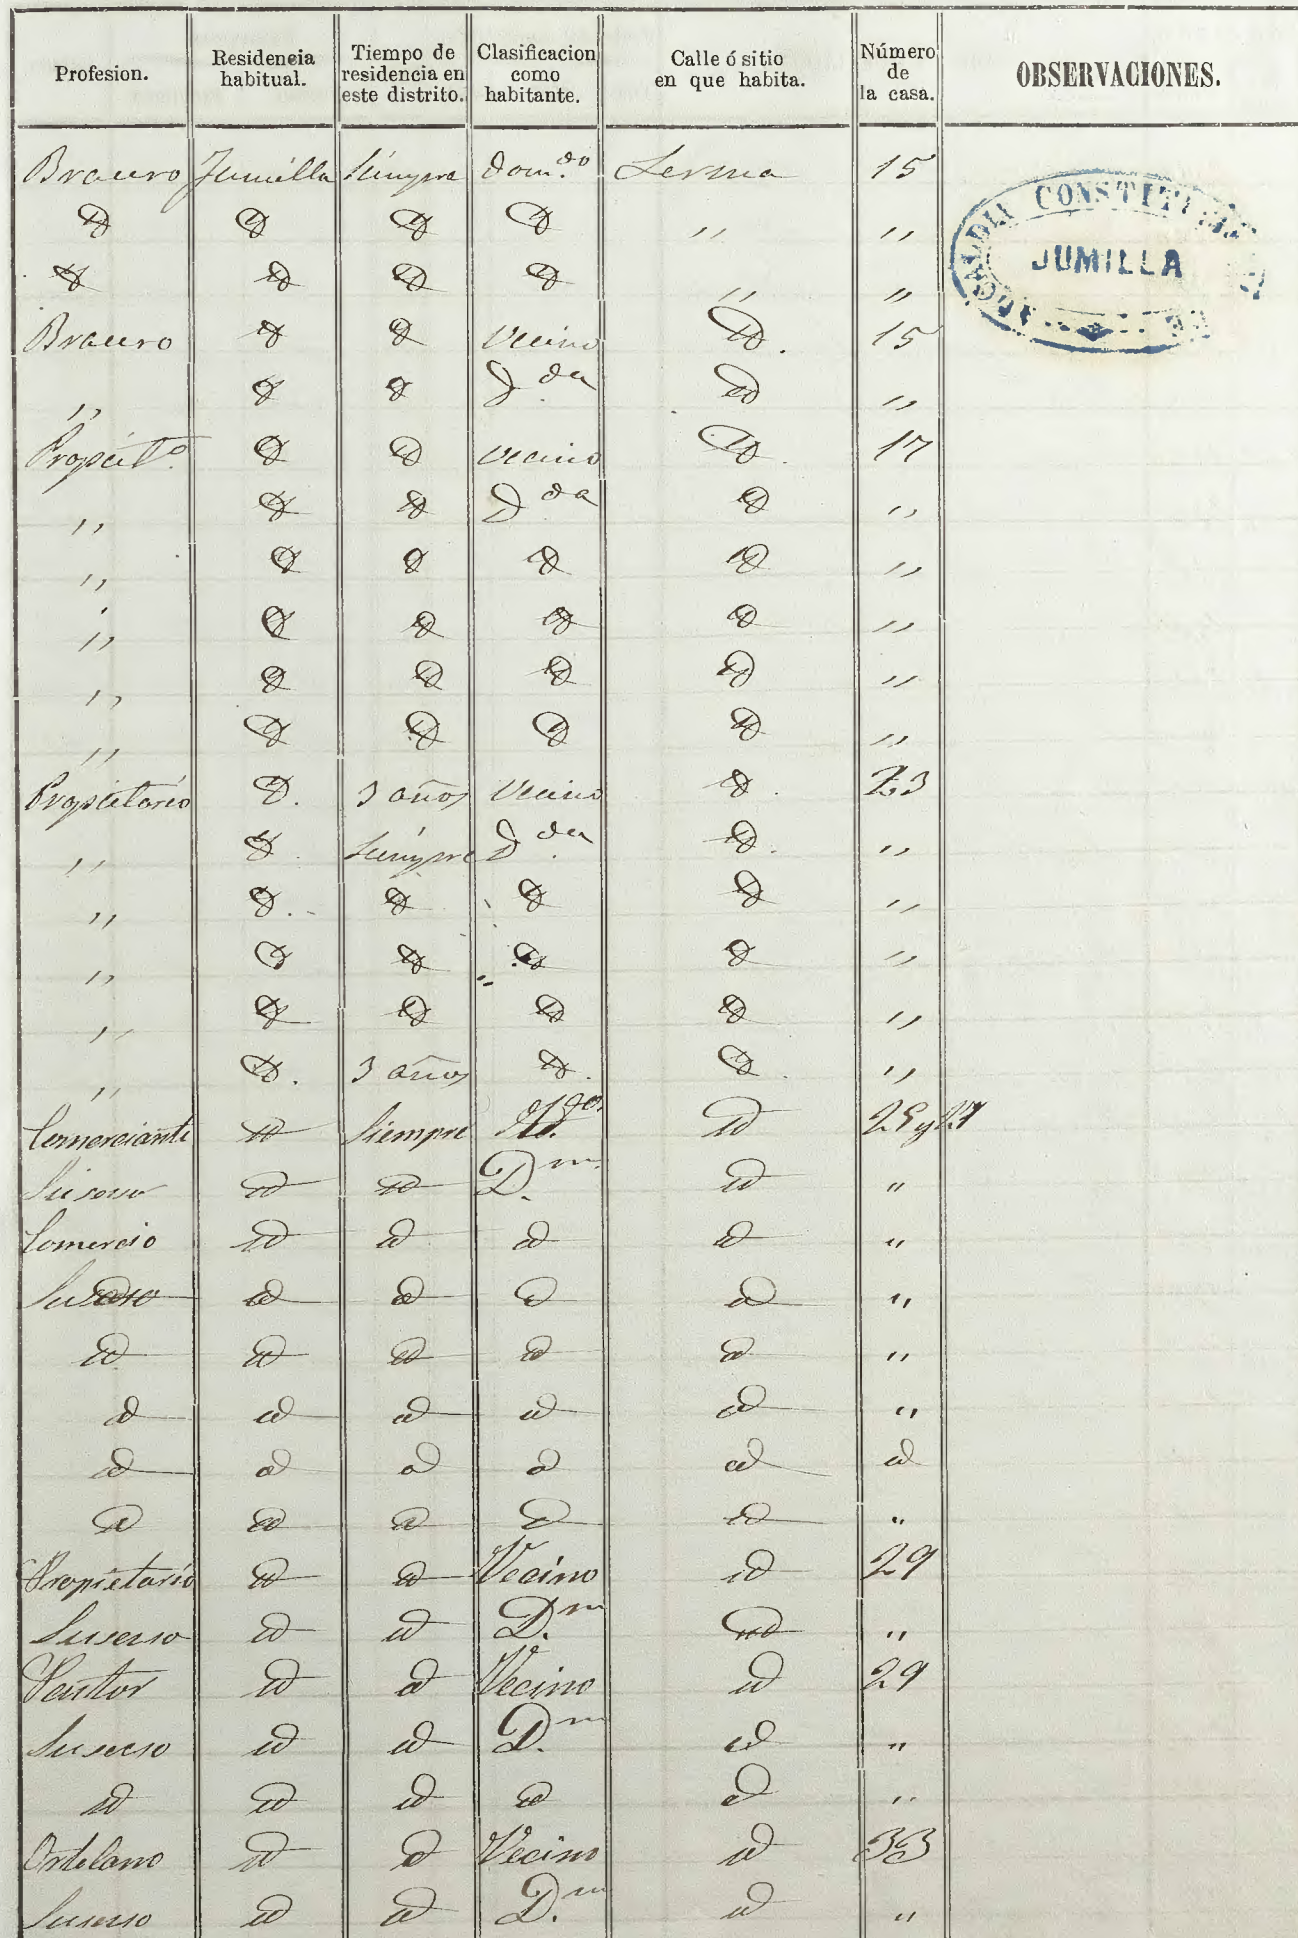 Profesion. Residencia habitual. Tiempo de residencia en este distrito. Clasificacion como habitante. Calle ó sitio en que habita. Número de la casa. OBSERVACIONES.
ALCALDIA CONSTITUCIONAL DE JUMILLA
Bracero Jumilla Siempre Dom.do Lerma 15
id id id id " "
id id id id " "
Bracero id id Vecino id. 15
" id id D.da id "
Propiet.o id id Vecino id. 17
" id id D.da id "
" id id id id "
" id id id id "
" id id id id "
" id id id id "
Propietario id. 3 años Vecino id. 23
" id. Siempre D.da id. "
" id. id id id "
" id id id id "
" id id id id "
" id. 3 años id. id. "
Comerciante id Siempre id 25 y 27
Su sexso id id D.m id "
Comercio id id id id "
Su sexso id id id id "
id id id id id "
id id id id id "
id id id id id id
id id id id id "
Propietario id id Vecino id 29
Su sexso id id D.m id "
Pastor id id Vecino id 29
Su sexso id id D.m id "
id id id id id "
Ortelano id id Vecino id 33
Su sexso id id D.m id "